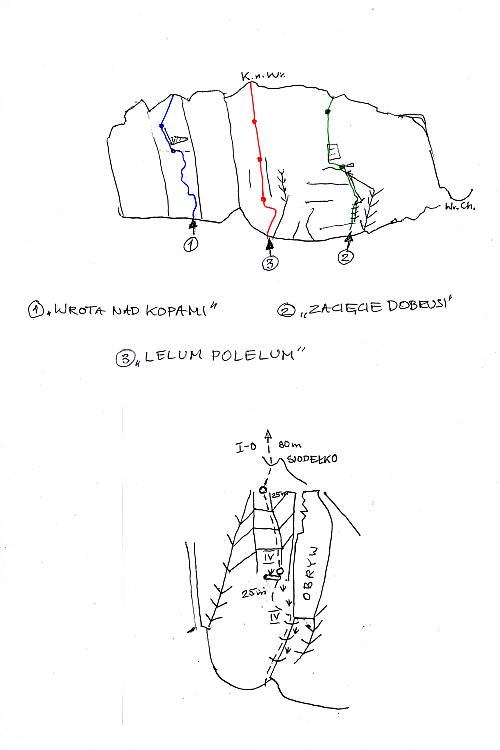 K.n.Wr.
Wr.Ch.
1
3
2
① „WROTA NAD KOPAMI"
② „ZACIĘCIE DOBRUSI"
③ „LELUM POLELUM"
I-0 80m
SIODEŁKO
25m
IV
OBRYW
25m
IV